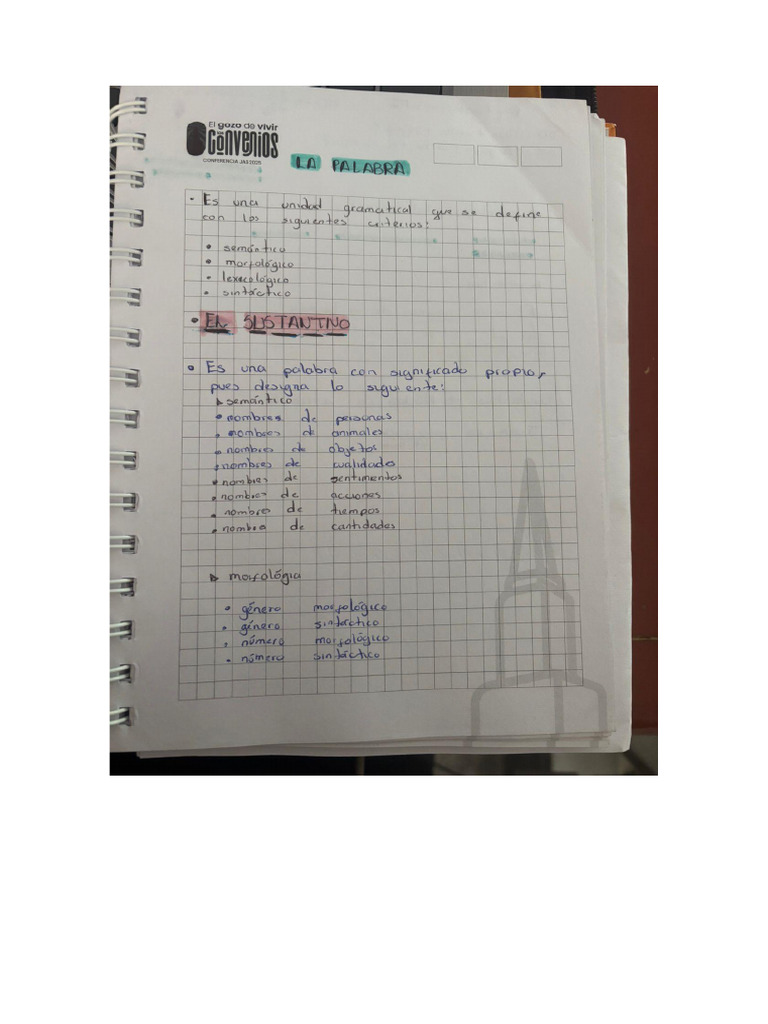 El gozo de vivir
los
Convenios
CONFERENCIA JAS 2025
LA PALABRA
• Es una unidad gramatical que se define
con los siguientes criterios:
• semántico
• morfológico
• lexicológico
• sintáctico
• EL SUSTANTIVO
• Es una palabra con significado propio,
pues designa lo siguiente:
▸ semántico
• nombres de personas
• nombres de animales
• nombres de objetos
• nombres de cualidades
• nombres de sentimentos
• nombres de acciones
• nombre de tiempos
• nombre de cantidades
▸ morfológia
• género morfológico
• género sintáctico
• número morfológico
• número sintáctico